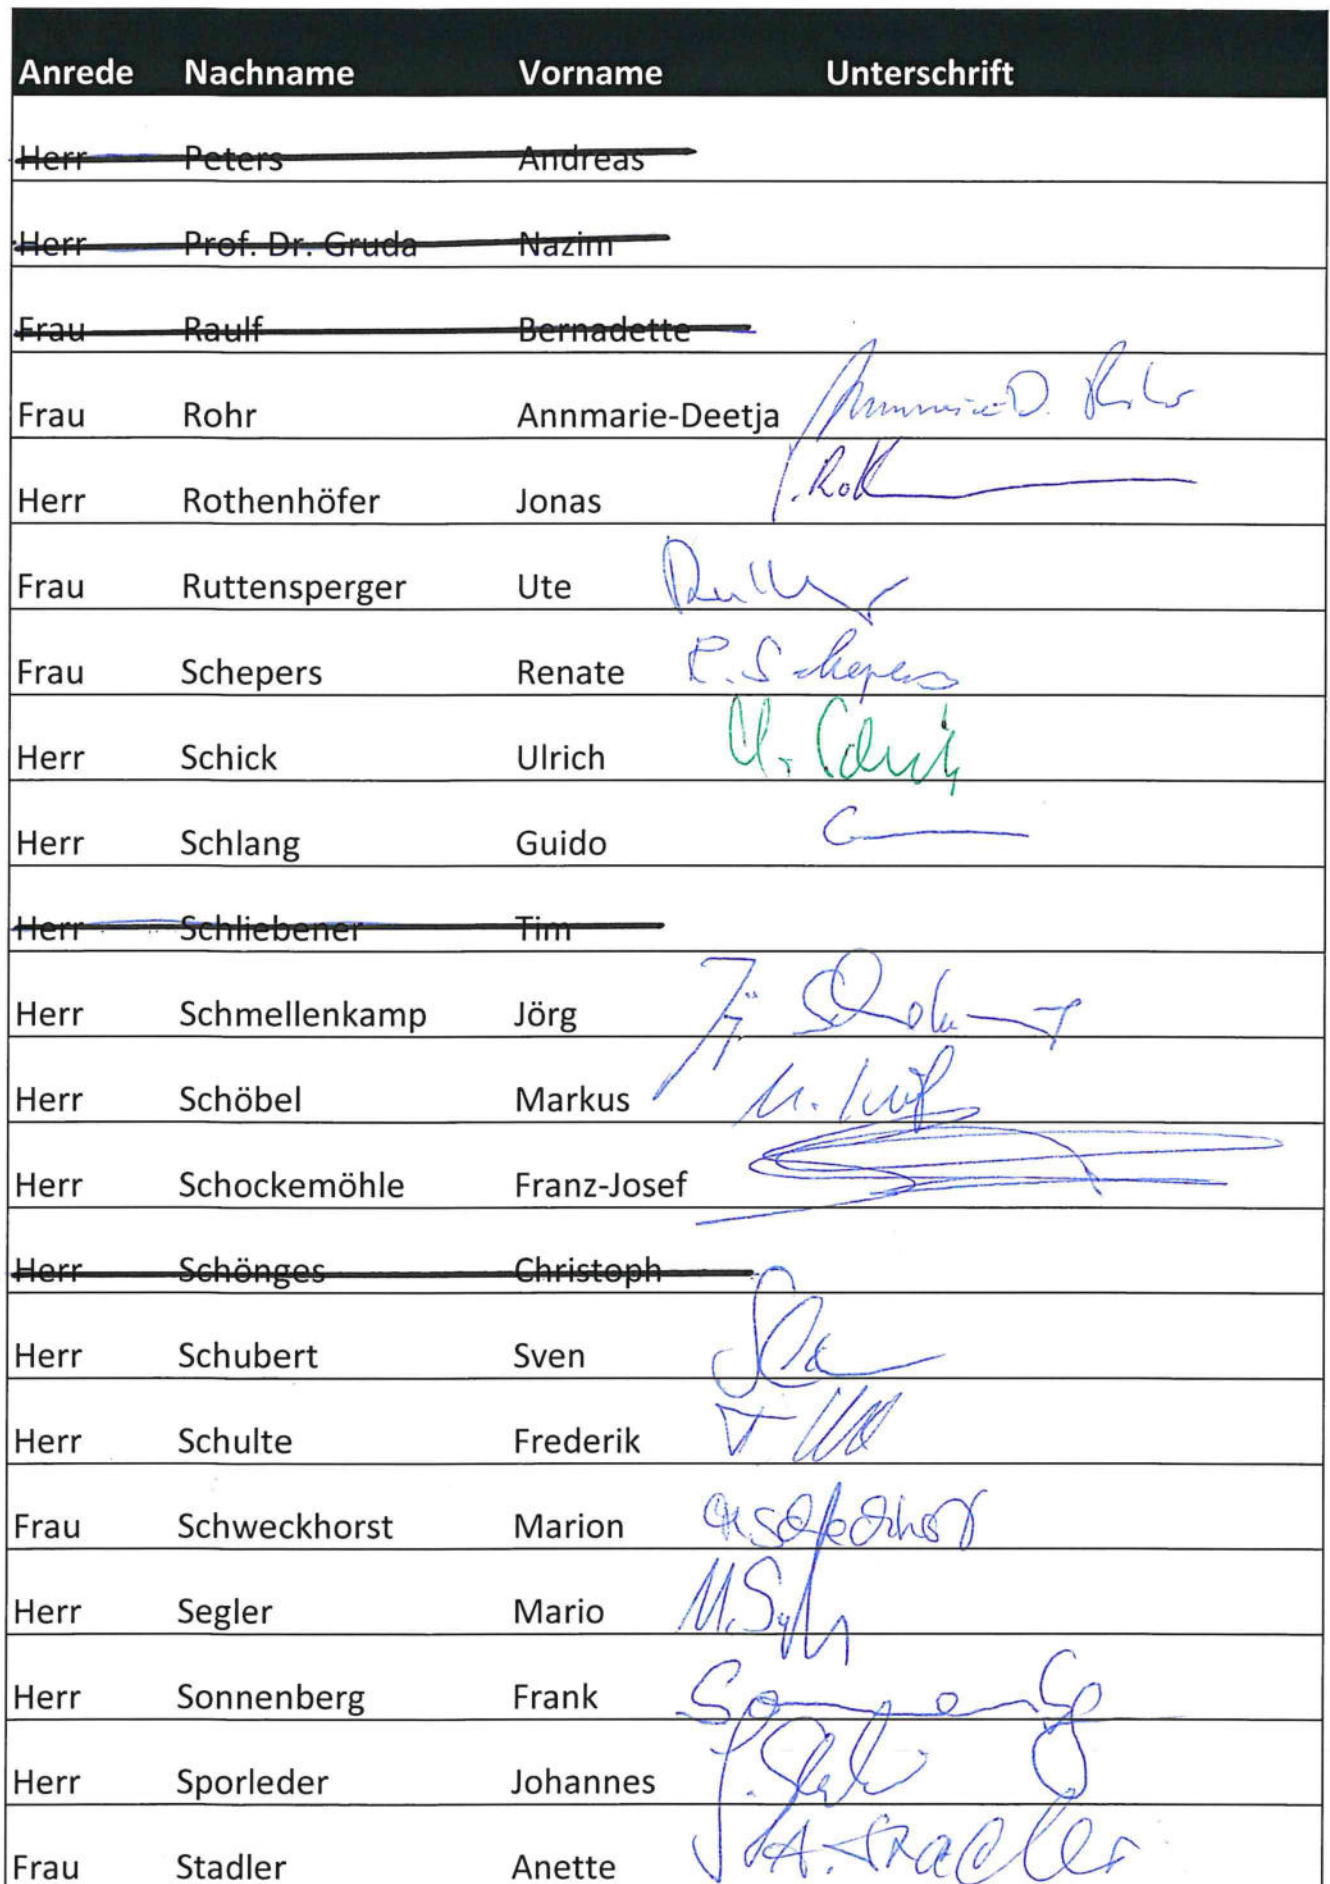 Anrede Nachname Vorname Unterschrift
Herr Peters Andreas
Herr Prof. Dr. Gruda Nazim
Frau Raulf Bernadette
Frau Rohr Annmarie-Deetja
Herr Rothenhöfer Jonas
Frau Ruttensperger Ute
Frau Schepers Renate R. Schepers
Herr Schick Ulrich U. Schick
Herr Schlang Guido
Herr Schliebener Tim
Herr Schmellenkamp Jörg
Herr Schöbel Markus
Herr Schockemöhle Franz-Josef
Herr Schönges Christoph
Herr Schubert Sven
Herr Schulte Frederik
Frau Schweckhorst Marion
Herr Segler Mario
Herr Sonnenberg Frank
Herr Sporleder Johannes
Frau Stadler Anette A. Stadler